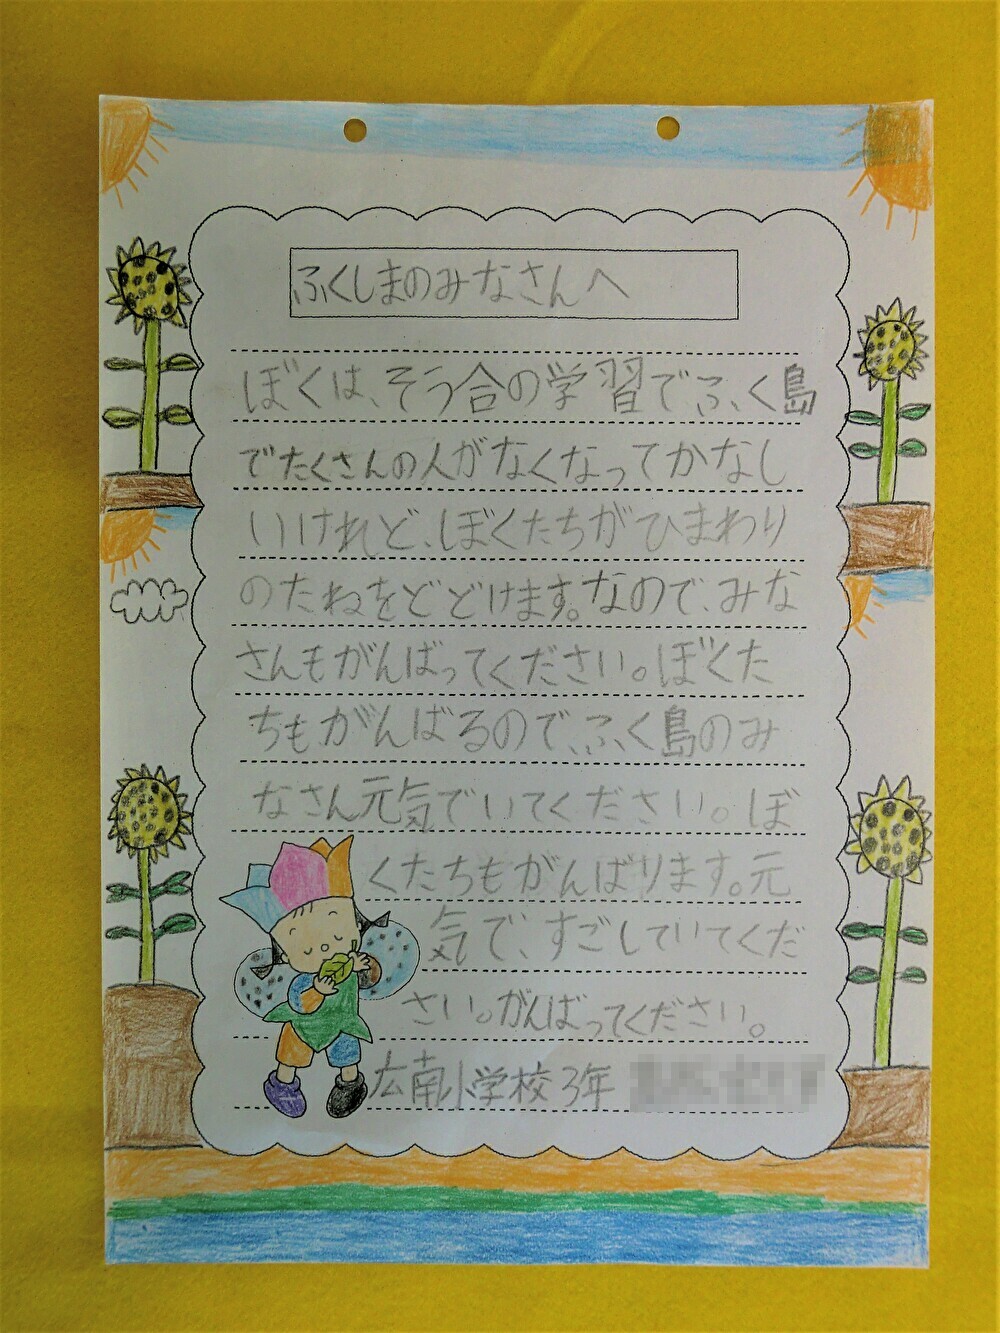 ふくしまのみなさんへ
ぼくは、そう合の学習でふく島
でたくさんの人がなくなってかなし
いけれど、ぼくたちがひまわり
のたねをとどけます。なので、みな
さんもがんばってください。ぼくた
ちもがんばるので、ふく島のみ
なさん元気でいてください。ぼ
くたちもがんばります。元
気で、すごしていてくだ
さい。がんばってください。
広南小学校3年